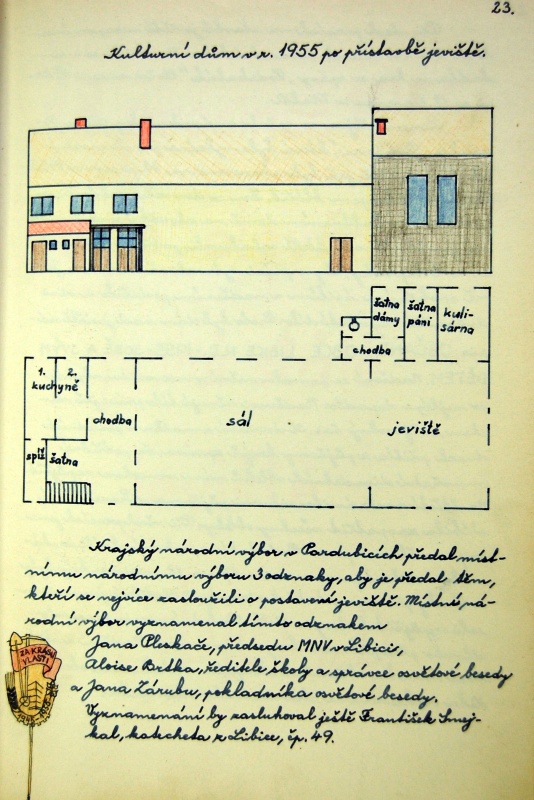 23.
Kulturní dům v r. 1955 po přístavbě jeviště.
šatna dámy
šatna páni
kuli-
sárna
chodba
1. 2.
kuchyně
chodba
sál
jeviště
spíž
šatna
Krajský národní výbor v Pardubicích předal míst-
nímu národnímu výboru 3 odznaky, aby je předal těm,
kteří se nejvíce zasloužili o postavení jeviště. Místní ná-
rodní výbor vyznamenal tímto odznakem
Jana Pleskače, předsedu MNV v Libici,
Aloise Brtka, ředitele školy a správce osvětové besedy
a Jana Zárubu, pokladníka osvětové besedy.
Vyznamenání by zasluhoval ještě František Smej-
kal, katecheta z Libice, čp. 49.
ZA KRÁSU
VLASTI